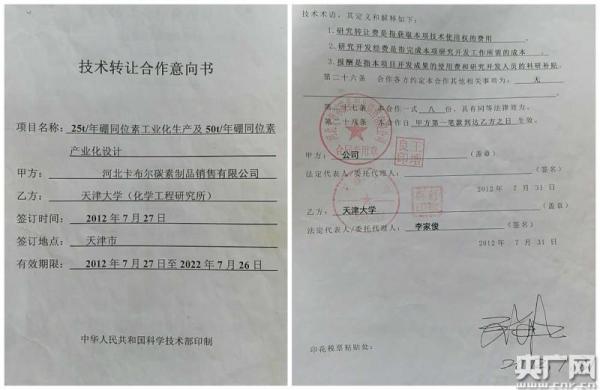 技术转让合作意向书
项目名称: 25t/年硼同位素工业化生产及 50t/年硼同位素
产业化设计
甲方: 河北卡布尔碳素制品销售有限公司
乙方: 天津大学(化学工程研究所)
签订时间: 2012 年 7 月 27 日
签订地点: 天津市
有效期限: 2012 年 7 月 27 日至 2022 年 7 月 26 日
中华人民共和国科学技术部印制
技术术语,其定义和解释如下:
1.研究转让费是指获取本项技术使用权的费用
2.研究开发经费是指完成本项研究开发工作所需的成本
3.报酬是指本项目开发成果的使用费和研究开发人员的科研补贴。
第二十六条 合作各方约定本合作其他相关事项为: 无
第二十七条 本合作一式 八 份,具有同等法律效力。
第二十八条 本合作自 甲方第一笔款到达乙方之日 生效。
甲方: 公司 (盖章)
法定代表人/委托代理人: (签名)
2012 年 7 月 31 日
乙方: 天津大学 (盖章)
法定代表人/委托代理人: 李家俊 (签名)
2012 年 7 月 31 日
印花税票粘贴处:
央广网
www.cnr.cn